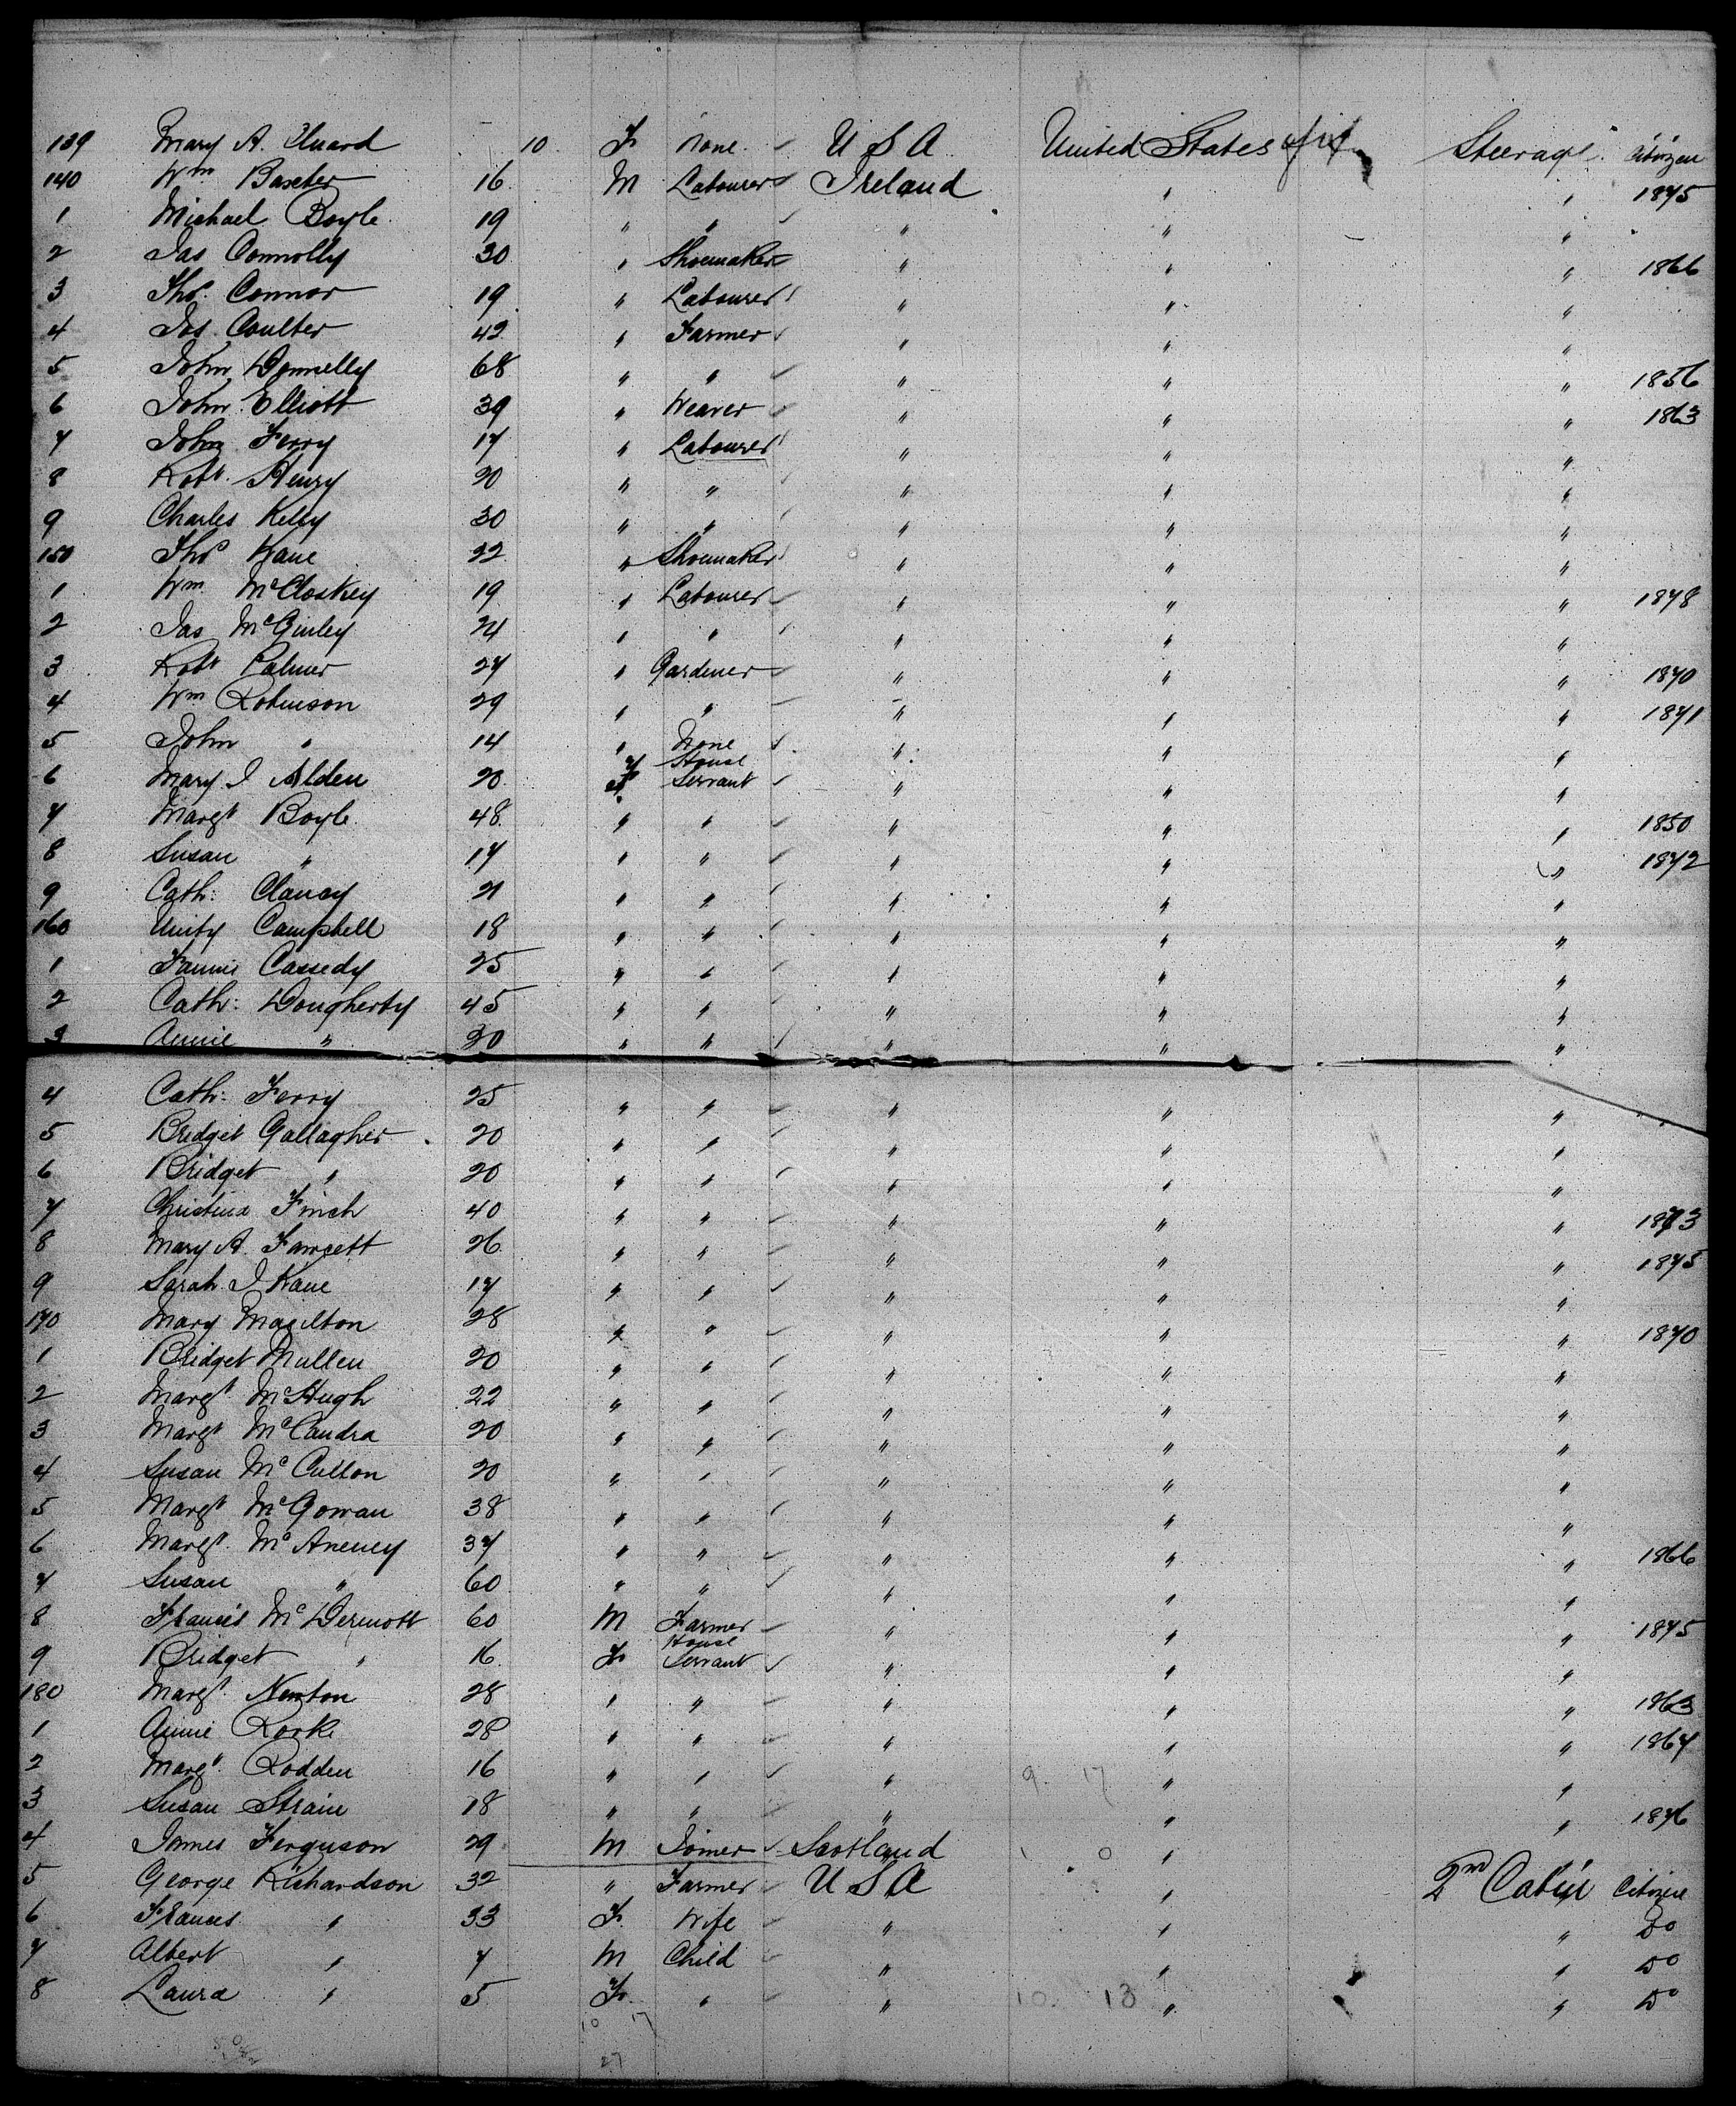 139 Mary A. 10 F None U S A United States Steerage Citizen
140 Wm Baxter 16 M Labourer Ireland " " 1875
1 Michael Boyle 19 " " " " "
2 Jas Connolly 30 " Shoemaker " " " 1866
3 Thos. Connor 19 " Labourer " " "
4 Jos. Coulter 42 " Farmer " " "
5 John Donnelly 68 " " " " " 1856
6 John Elliott 39 " Weaver " " " 1863
7 John Ferry 17 " Labourer " " "
8 Robt. Henry 20 " " " " "
9 Charles Kelly 30 " " " " "
150 Thos Kane 22 " Shoemaker " " "
1 Wm. McCloskey 19 " Labourer " " " 1878
2 Jas McGinley 24 " " " " "
3 Robt Palmer 27 " Gardener " " " 1870
4 Wm Robinson 29 " " " " " 1871
5 John " 14 " None " " "
6 Mary J Alden 20 F House Servant " " "
7 Margt Boyle 48 " " " " " 1850
8 Susan " 17 " " " " " 1872
9 Cath: Clancy 21 " " " " "
160 Unity Campbell 18 " " " " "
1 Fannie Cassedy 25 " " " " "
2 Cath: Dougherty 45 " " " " "
3 Annie " 30 " " " " "
4 Cath: Ferry 25 " " " " "
5 Bridget Gallagher 20 " " " " "
6 Bridget " 20 " " " " "
7 Christina Finch 40 " " " " " 1873
8 Mary A. Fawcett 26 " " " " " 1875
9 Sarah J Kane 17 " " " " "
170 Mary Magilton 28 " " " " " 1870
1 Bridget Mullen 20 " " " " "
2 Margt McHugh 22 " " " " "
3 Margt McCandra 20 " " " " "
4 Susan McCullon 20 " " " " "
5 Margt McGowan 38 " " " " "
6 Margt. McAneney 37 " " " " " 1866
7 Susan " 60 " " " " "
8 Francis McDermott 60 M Farmer " " " 1875
9 Bridget " 16 F House Servant " " "
180 Margt. Newton 28 " " " " " 1863
1 Annie Rorke 28 " " " " " 1867
2 Margt. Rodden 16 " " " " "
3 Susan Strain 18 " " " " " 1876
4 James Ferguson 29 M Joiner Scotland "
5 George Richardson 32 " Farmer U S A " 2nd Cabin Citizen
6 Frances " 33 F. Wife " " " Do
7 Albert " 7 M Child " " " Do
8 Laura " 5 F. " " " " Do
10 17
27